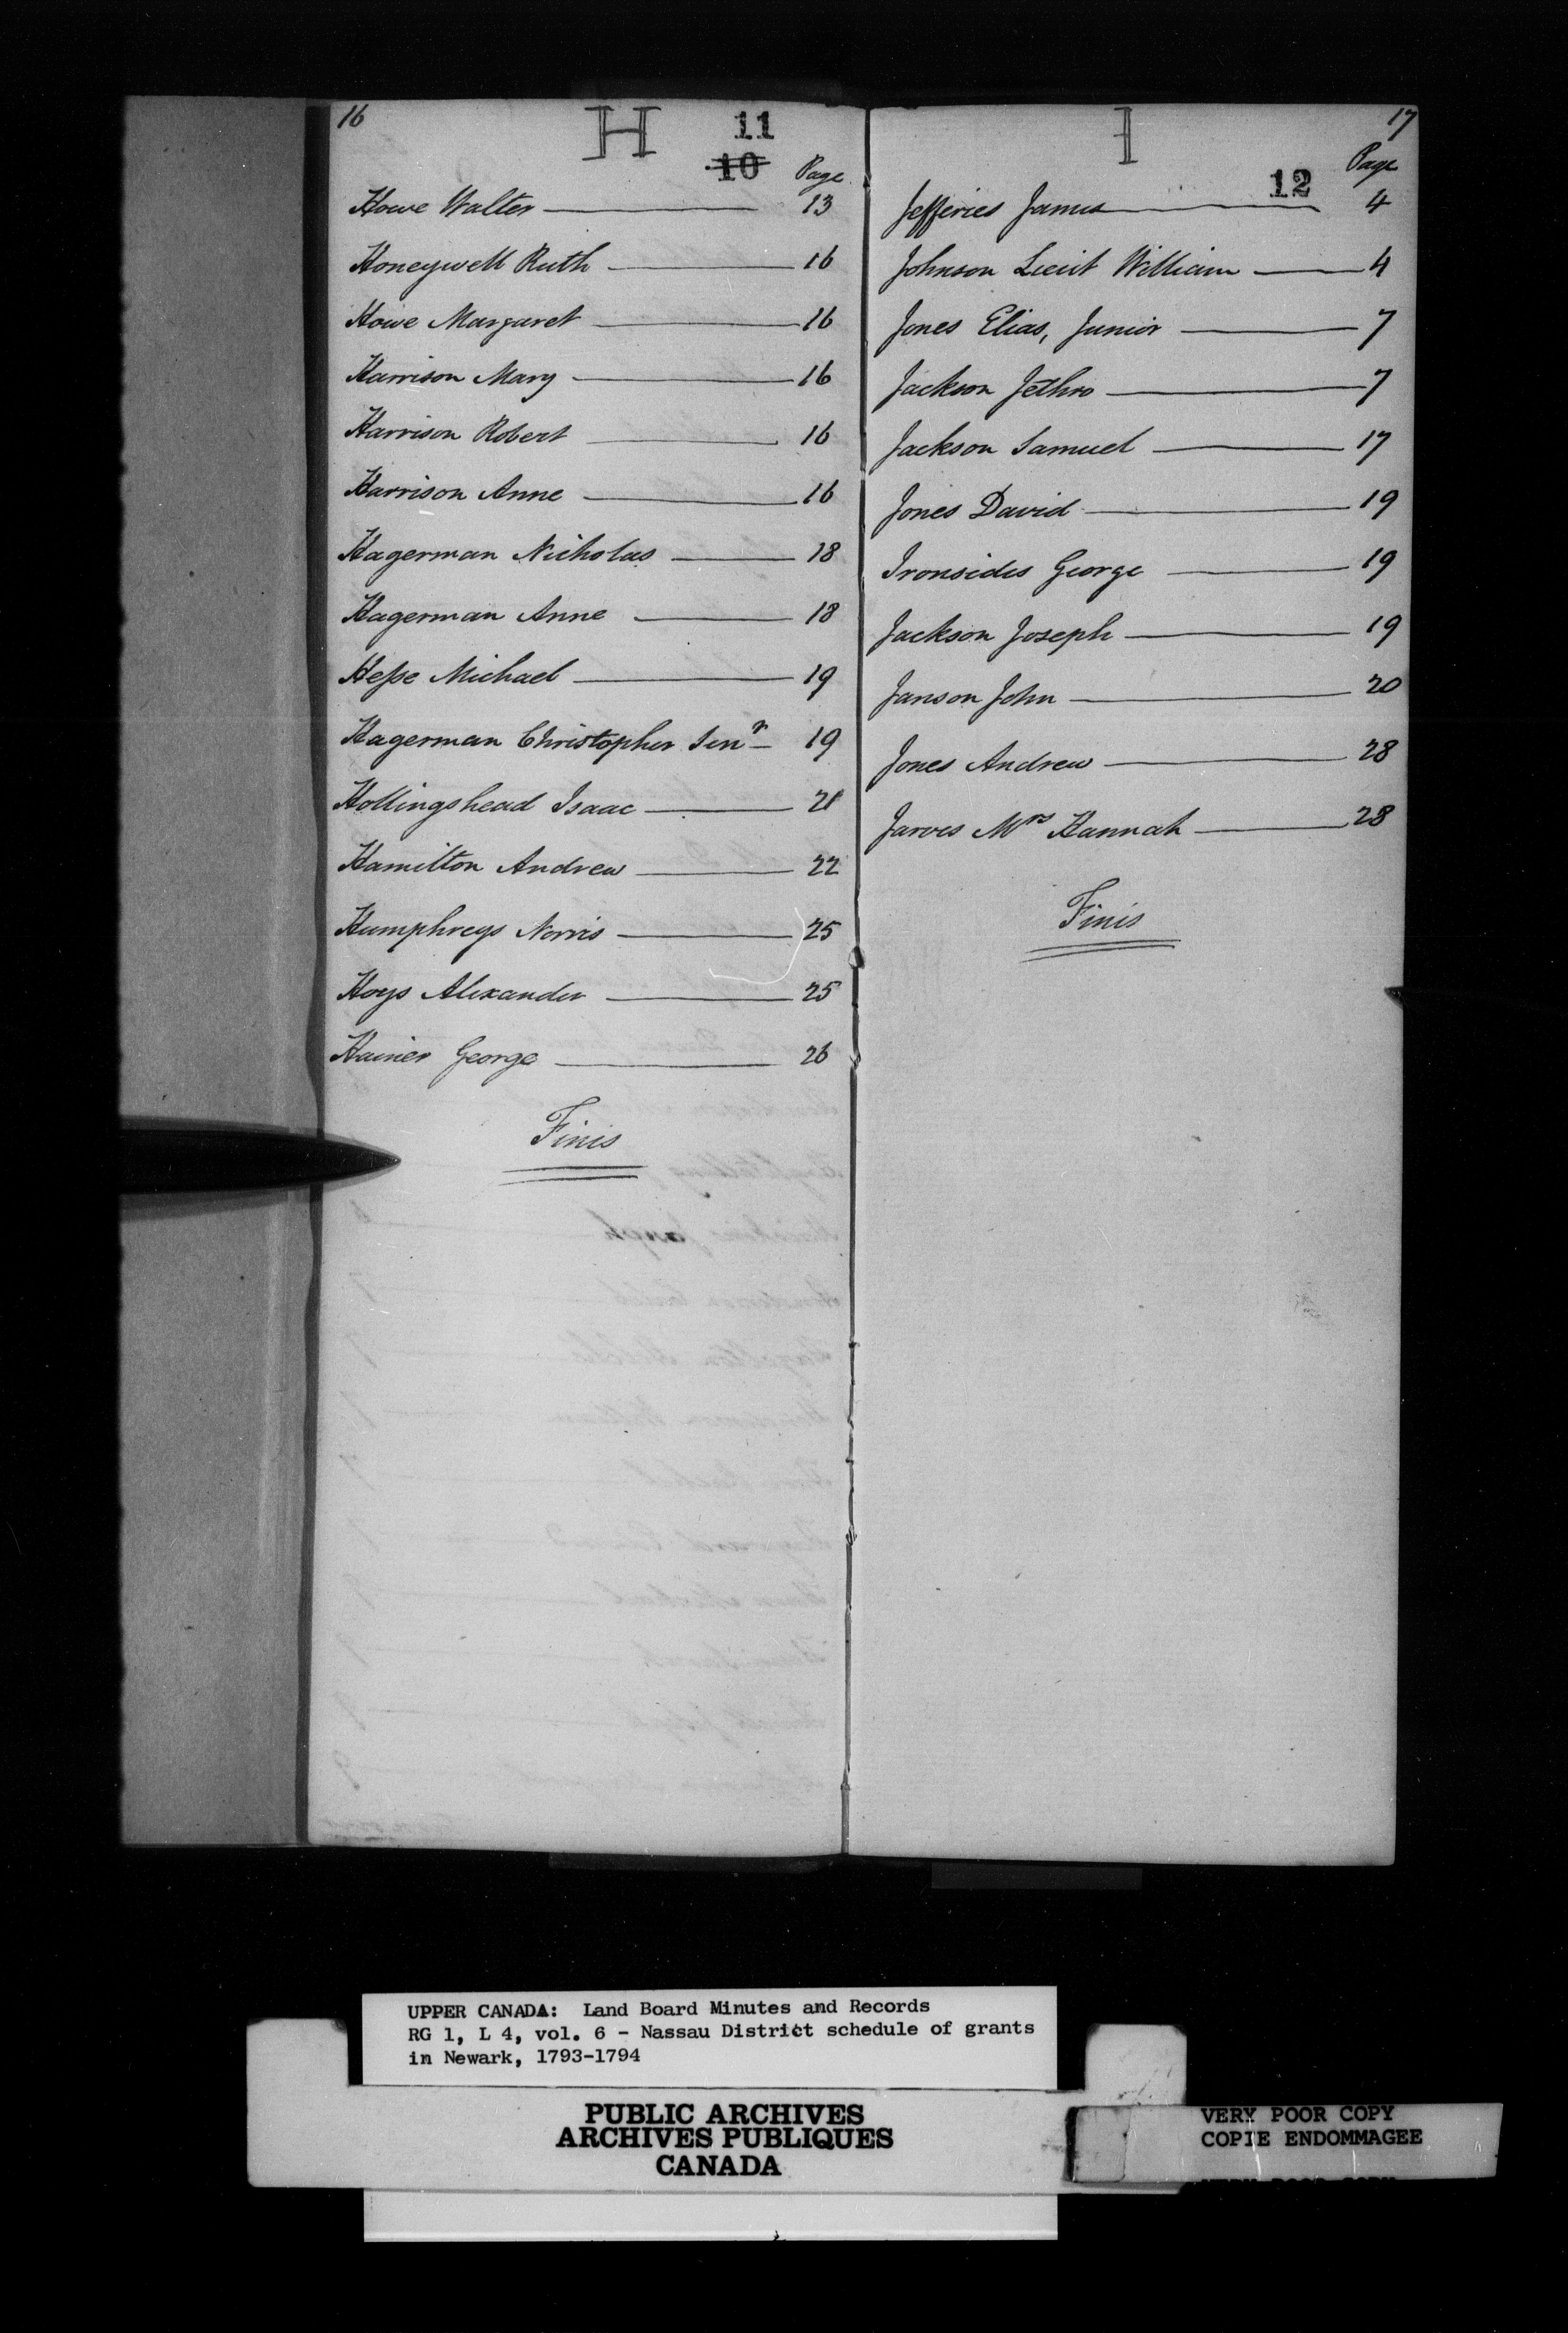 16
H
11
10
Page
Howe Walter 13
Honeywell Ruth 16
Howe Margaret 16
Harrison Mary 16
Harrison Robert 16
Harrison Anne 16
Hagerman Nicholas 18
Hagerman Anne 18
Heſse Michael 19
Hagerman Christopher Senr 19
Hollingshead Isaac 21
Hamilton Andrew 22
Humphreys Norris 25
Hoys Alexander 25
Hainer George 26
Finis
17
I
Page
12
Jefferies James 4
Johnson Lieut William 4
Jones Elias, Junior 7
Jackson Jethro 7
Jackson Samuel 17
Jones David 19
Ironsides George 19
Jackson Joseph 19
Janson John 20
Jones Andrew 28
Jarves Mrs Hannah 28
Finis
UPPER CANADA: Land Board Minutes and Records
RG 1, L 4, vol. 6 - Nassau District schedule of grants
in Newark, 1793-1794
PUBLIC ARCHIVES
ARCHIVES PUBLIQUES
CANADA
VERY POOR COPY
COPIE ENDOMMAGEE